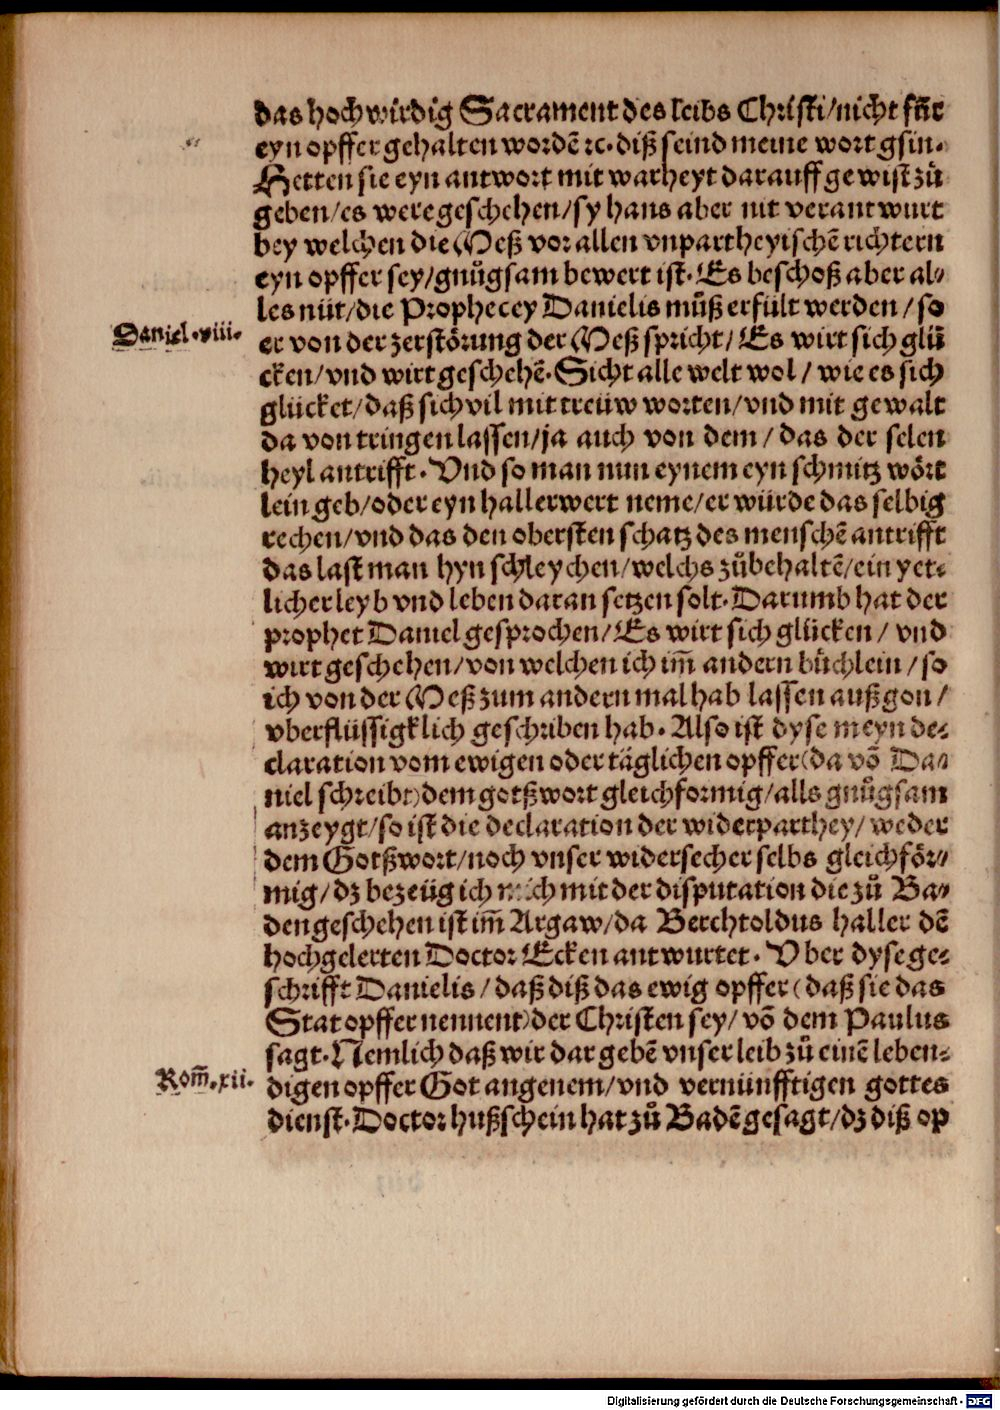 das hochwirdig Sacrament des leibs Christi/nicht für
eyn opffer gehalten wordẽ ꝛc. diß seind meine wort gsin.
Hetten sie eyn antwort mit warheyt darauff gewist zů
geben/es were geschehen/sy hans aber nit verantwurt
bey welchen die Meß vor allen vnpartheyischẽ richtern
eyn opffer sey/gnůgsam bewert ist. Es beschoß aber al⸗
les nüt/die Prophecey Danielis můß erfült werden/so
Daniel.viii.
er von der zerstörung der Meß spricht/Es wirt sich glü
cken/vnd wirt geschehẽ. Sicht alle welt wol/wie es sich
glücket/daß sich vil mit treüw worten/vnd mit gewalt
da von tringen lassen/ja auch von dem/das der selen
heyl antrifft. Vnd so man nun eynem eyn schmitz wört
lein geb/oder eyn hallerwert neme/er würde das selbig
rechen/vnd das den obersten schatz des menschẽ antrifft
das last man hyn schleychen/welchs zůbehaltẽ/ein yet⸗
licher leyb vnd leben daran setzen solt. Darumb hat der
prophet Daniel gesprochen/Es wirt sich glücken/vnd
wirt geschehen/von welchen ich im̃ andern büchlein/so
ich von der Meß zum andern mal hab lassen außgon/
vberflüssigklich geschriben hab. Also ist dyse meyn de⸗
claration vom ewigen oder täglichen opffer(da võ Da⸗
niel schreibt)dem gotßwort gleichformig/alls gnůgsam
anzeygt/so ist die declaration der widerparthey/weder
dem Gotßwort/noch vnser widersecher selbs gleichför⸗
mig/dz bezeüg ich mich mit der disputation die zů Ba⸗
den geschehen ist im̃ Argaw/da Berchtoldus haller dẽ
hochgelerten Doctor Ecken antwurtet. Vber dyse ge⸗
schrifft Danielis/daß diß das ewig opffer(daß sie das
Stat opffer nennent)der Christen sey/võ dem Paulus
sagt. Nemlich daß wir dar gebẽ vnser leib zů einẽ leben⸗
Rom̃.xii.
digen opffer Got angenem/vnd vernünfftigen gottes
dienst. Doctor hußschein hat zů Badẽ gesagt/dz diß op
Digitalisierung gefördert durch die Deutsche Forschungsgemeinschaft - DFG